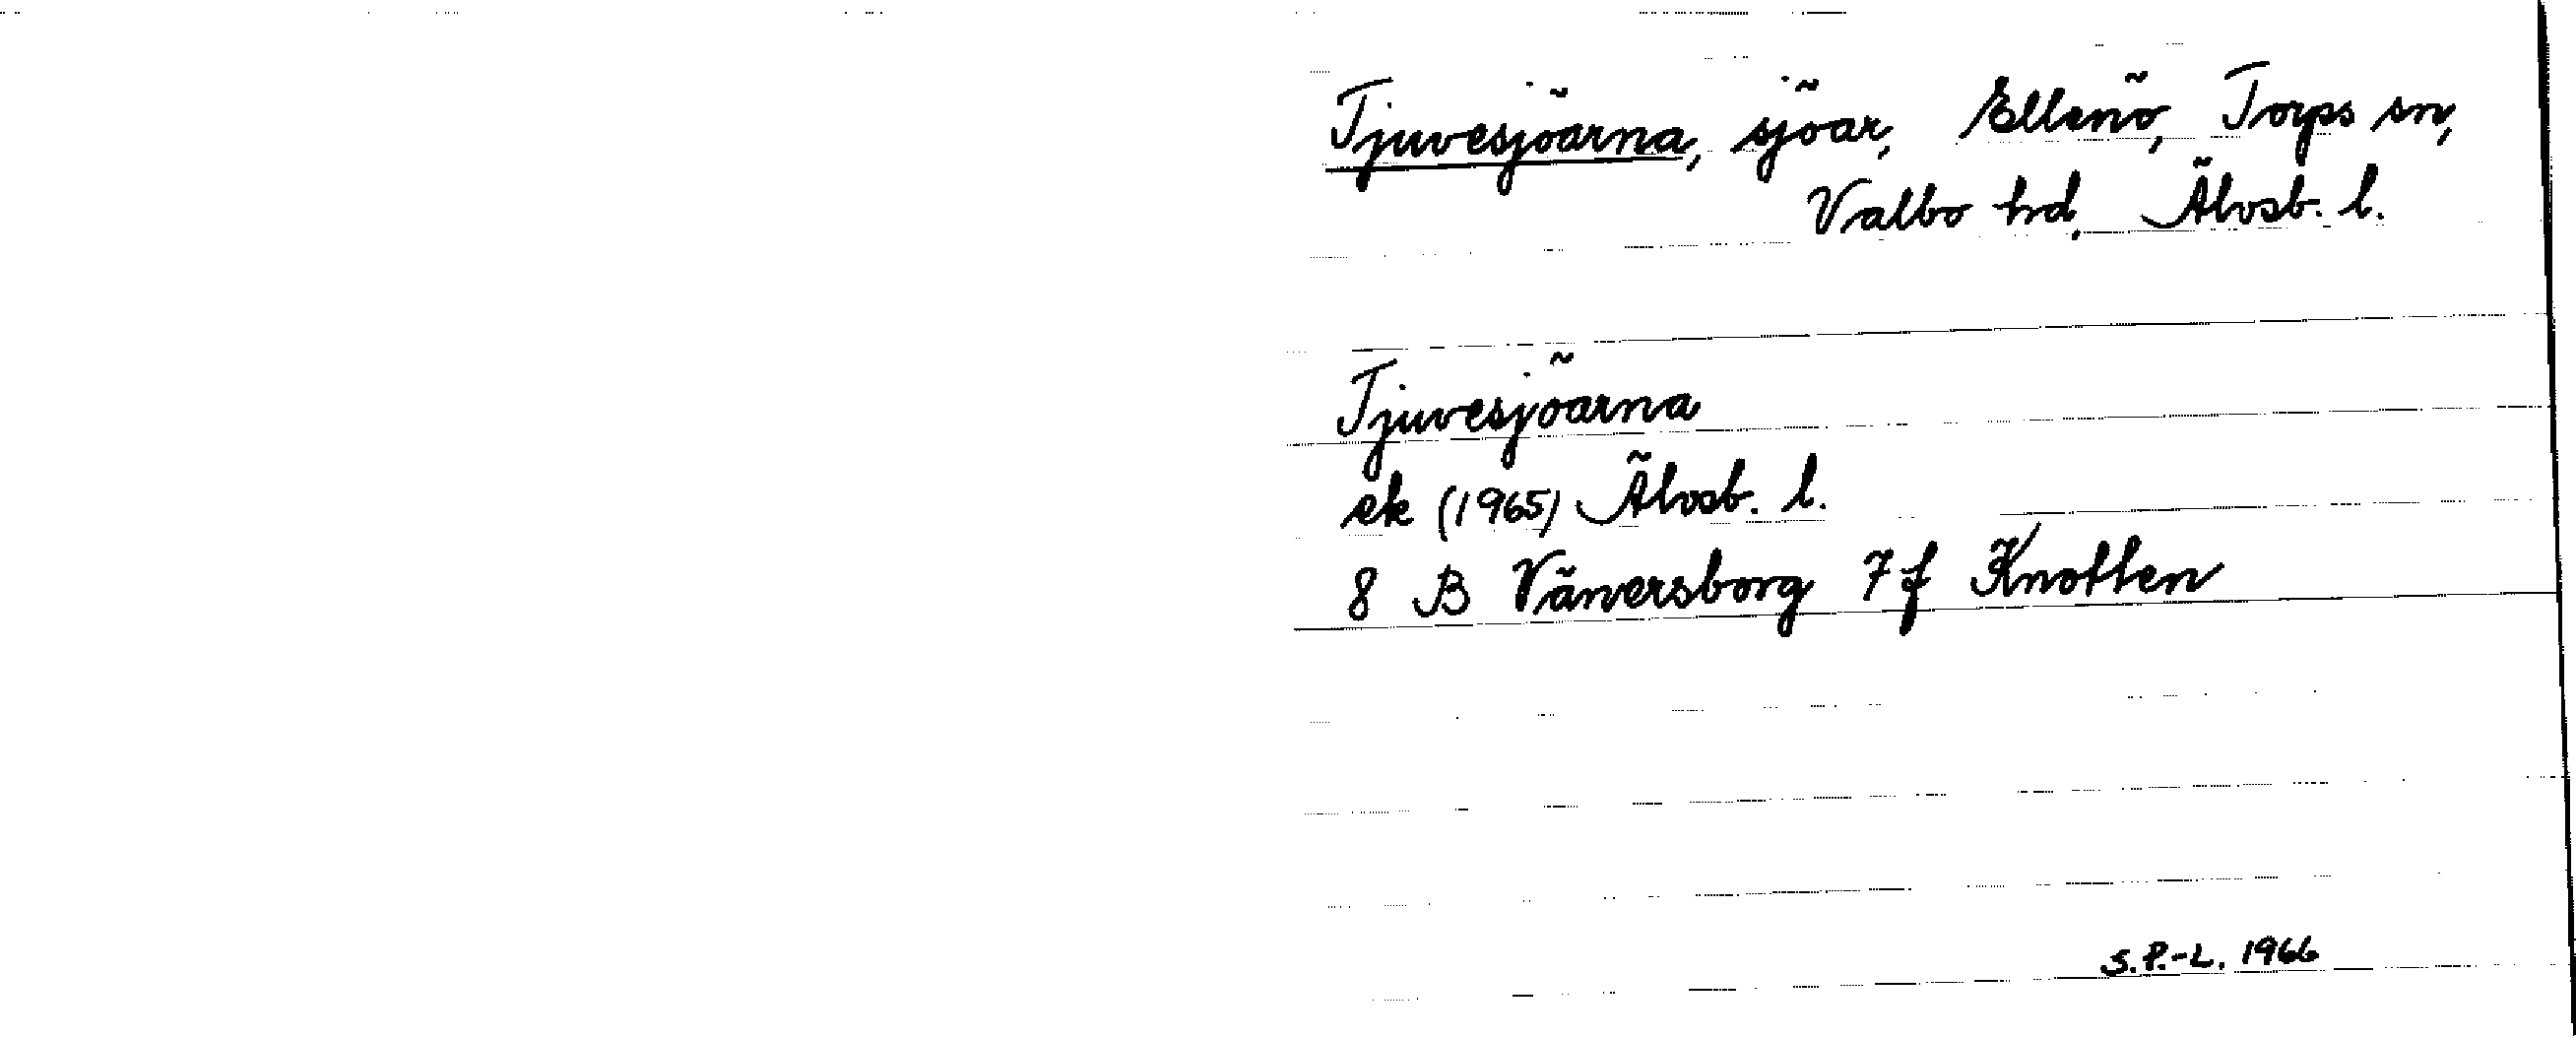 Tjuvesjöarna, sjöar, Ellenö, Torps sn,
Valbo hd, Älvsb. l.
Tjuvesjöarna
ek (1965) Älvsb. l.
8 B Vänersborg 7f Knotten
S.P.-L. 1966